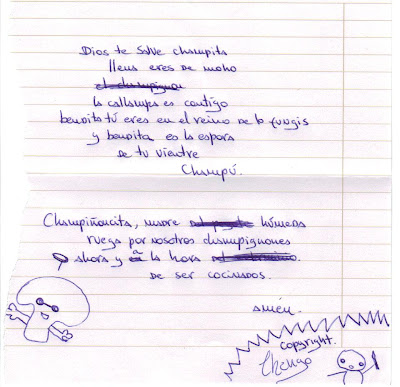 Dios te salve champita
llena eres de moho
la callampa es contigo
bendita tú eres en el reino de lo fungis
y bendita es la espora
de tu vientre
Champú.
Champiñoncita, madre húmeda
ruega por nosotros champignones
ahora y a la hora
de ser cocinados.
amén.
copyright.
Chango